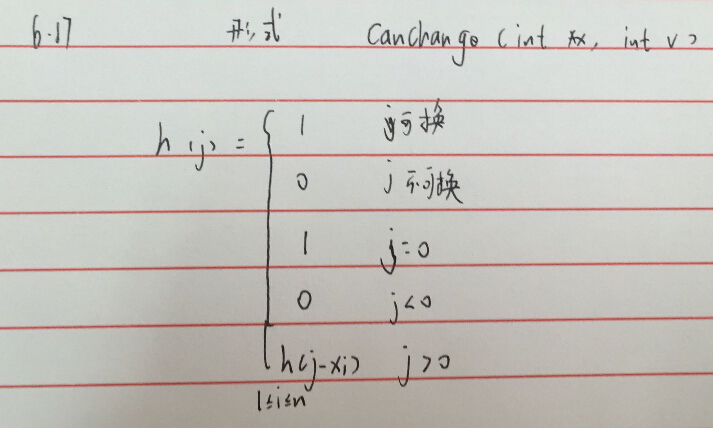 6.17 形式 Canchange (int *x, int v)
h(j) = { 1 j可换
0 j不可换
1 j=0
0 j<0
h(j-xi) j>0
1≤i≤n